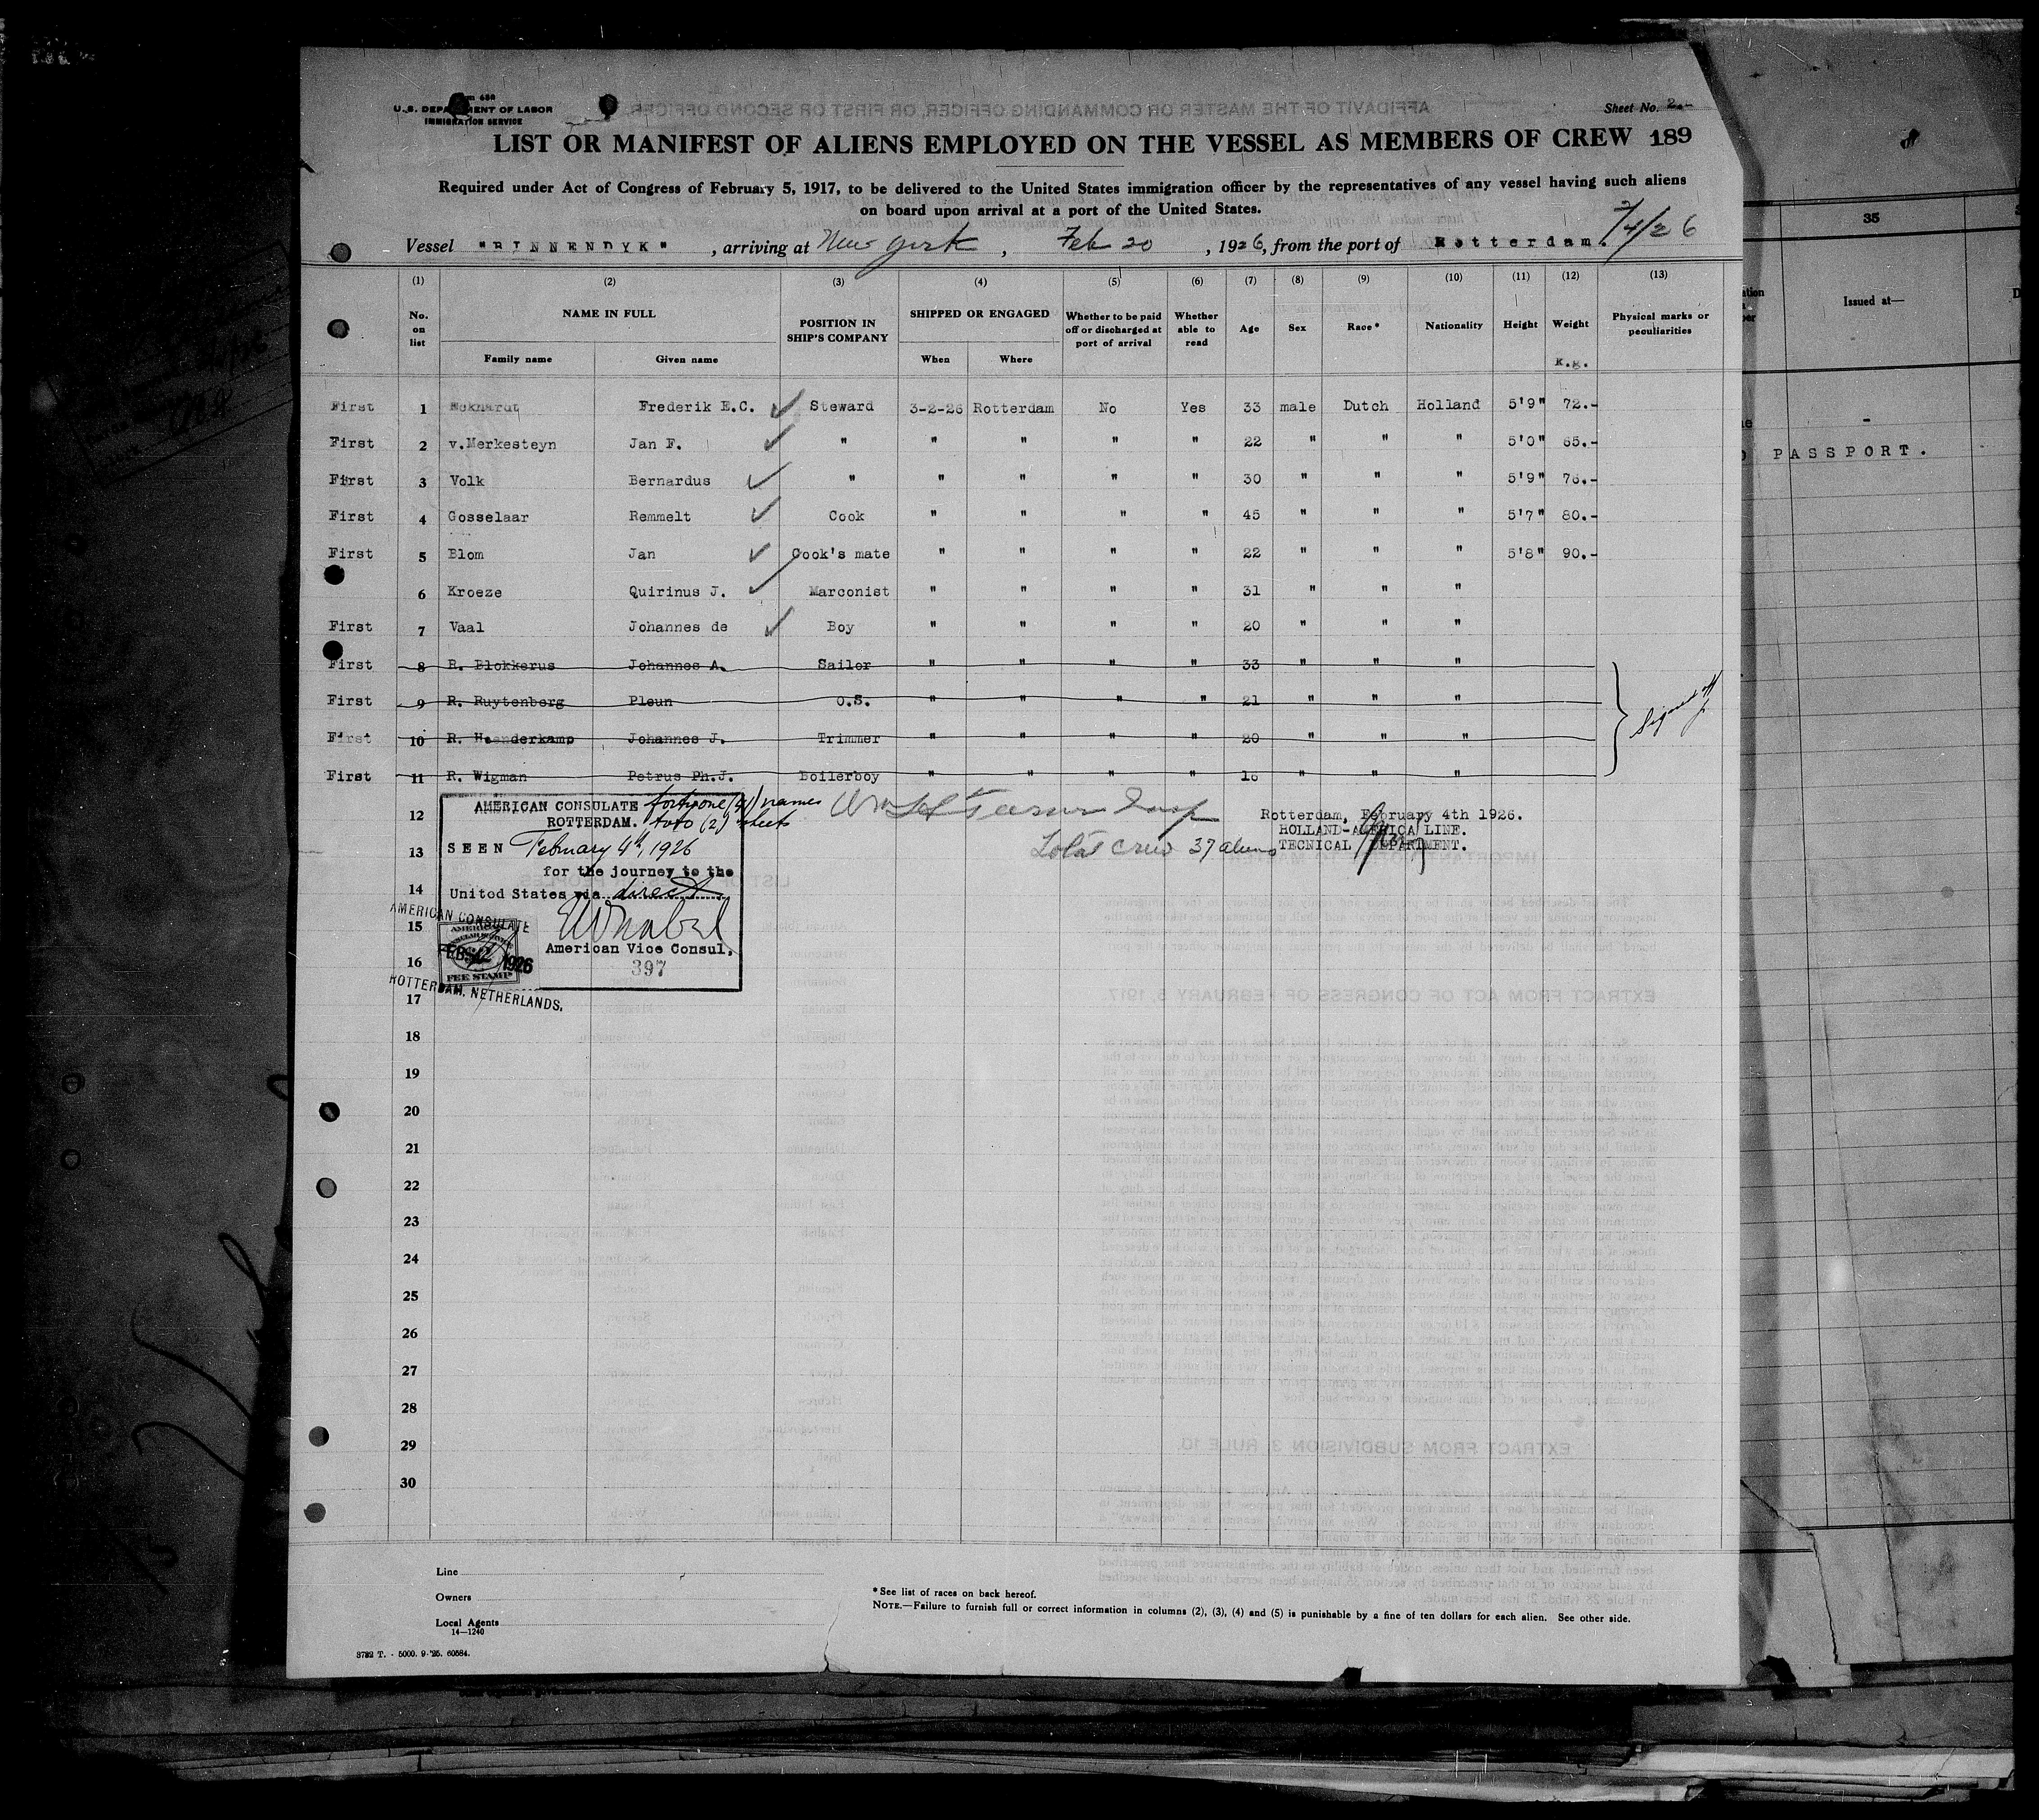 Form 680
U. S. DEPARTMENT OF LABOR
IMMIGRATION SERVICE
Sheet No. 2
LIST OR MANIFEST OF ALIENS EMPLOYED ON THE VESSEL AS MEMBERS OF CREW 189
Required under Act of Congress of February 5, 1917, to be delivered to the United States immigration officer by the representatives of any vessel having such aliens
on board upon arrival at a port of the United States.
2/4/26
Vessel "BINNENDYK" , arriving at New York , Feb 20 , 1926, from the port of Rotterdam.
(1) (2) (3) (4) (5) (6) (7) (8) (9) (10) (11) (12) (13)
No. on list NAME IN FULL Family name Given name POSITION IN SHIP'S COMPANY SHIPPED OR ENGAGED When Where Whether to be paid off or discharged at port of arrival Whether able to read Age Sex Race* Nationality Height Weight Physical marks or peculiarities
K.g.
First 1 Eckhardt Frederik E.C. Steward 3-2-26 Rotterdam No Yes 33 male Dutch Holland 5'9" 72.-
First 2 v.Merkesteyn Jan F. " " " " " 22 " " " 5'0" 65.-
First 3 Volk Bernardus " " " " " 30 " " " 5'9" 76.-
First 4 Gosselaar Remmelt Cook " " " " 45 " " " 5'7" 80.-
First 5 Blom Jan Cook's mate " " " " 22 " " " 5'8" 90.-
6 Kroeze Quirinus J. Marconist " " " " 31 " " "
First 7 Vaal Johannes de Boy " " " " 20 " " "
First 8 R. Blokkerus Johannes A. Sailor " " " " 33 " " "
First 9 R. Ruytenberg Pleun O.S. " " " " 21 " " "
First 10 R. Heenderkamp Johannes J. Trimmer " " " " 20 " " "
First 11 R. Wigman Petrus Ph.J. Boilerboy " " " " 16 " " "
Signed off
12
13
14
15
16
17
18
19
20
21
22
23
24
25
26
27
28
29
30
AMERICAN CONSULATE forty one (41) names
ROTTERDAM. two (2) sheets
SEEN February 4th, 1926
for the journey to the
United States via direct
American Vice Consul.
397
AMERICAN CONSULATE
AMERICAN
FEB 4 1926
FEE STAMP
ROTTERDAM, NETHERLANDS.
Total crew 37 aliens
Rotterdam, February 4th 1926.
HOLLAND-AMERICA LINE.
TECNICAL DEPARTMENT.
Line
Owners
Local Agents
14—1240
*See list of races on back hereof.
NOTE.—Failure to furnish full or correct information in columns (2), (3), (4) and (5) is punishable by a fine of ten dollars for each alien. See other side.
3782 T. - 5000. 9-'25. 60584.
35
Issued at—
-
PASSPORT.